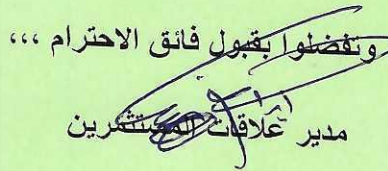 وتفضلوا بقبول فائق الاحترام ،،،
مدير علاقات المستثمرين